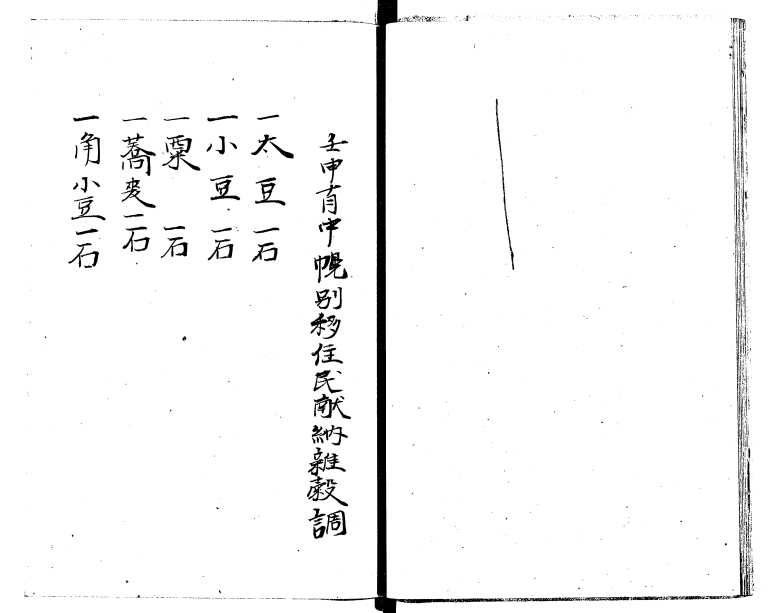 壬申肓中幌別移住民献納雑穀調
一太豆一石
一小豆一石
一粟一石
一蕎麦二石
一角小豆一石